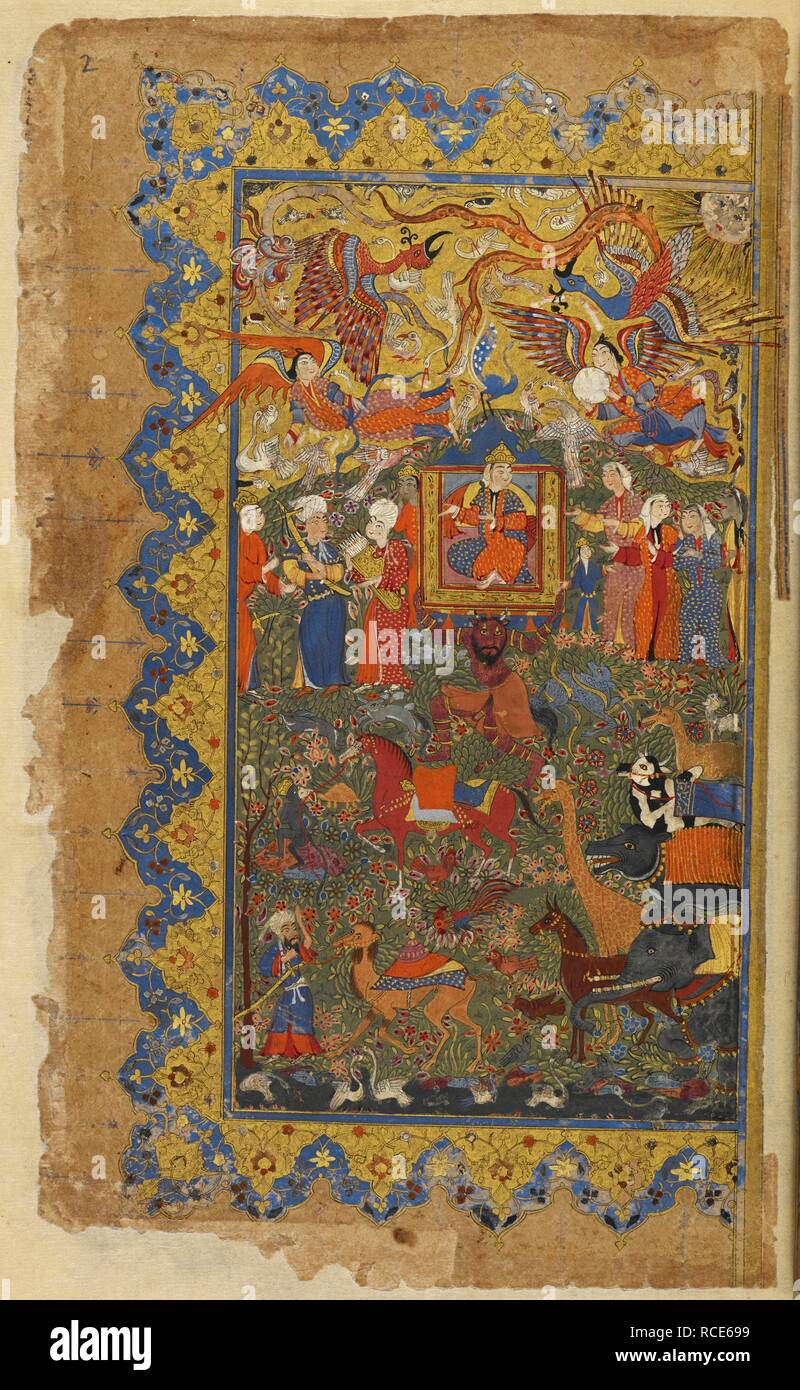 2
alamy
Image ID: RCE699
www.alamy.com